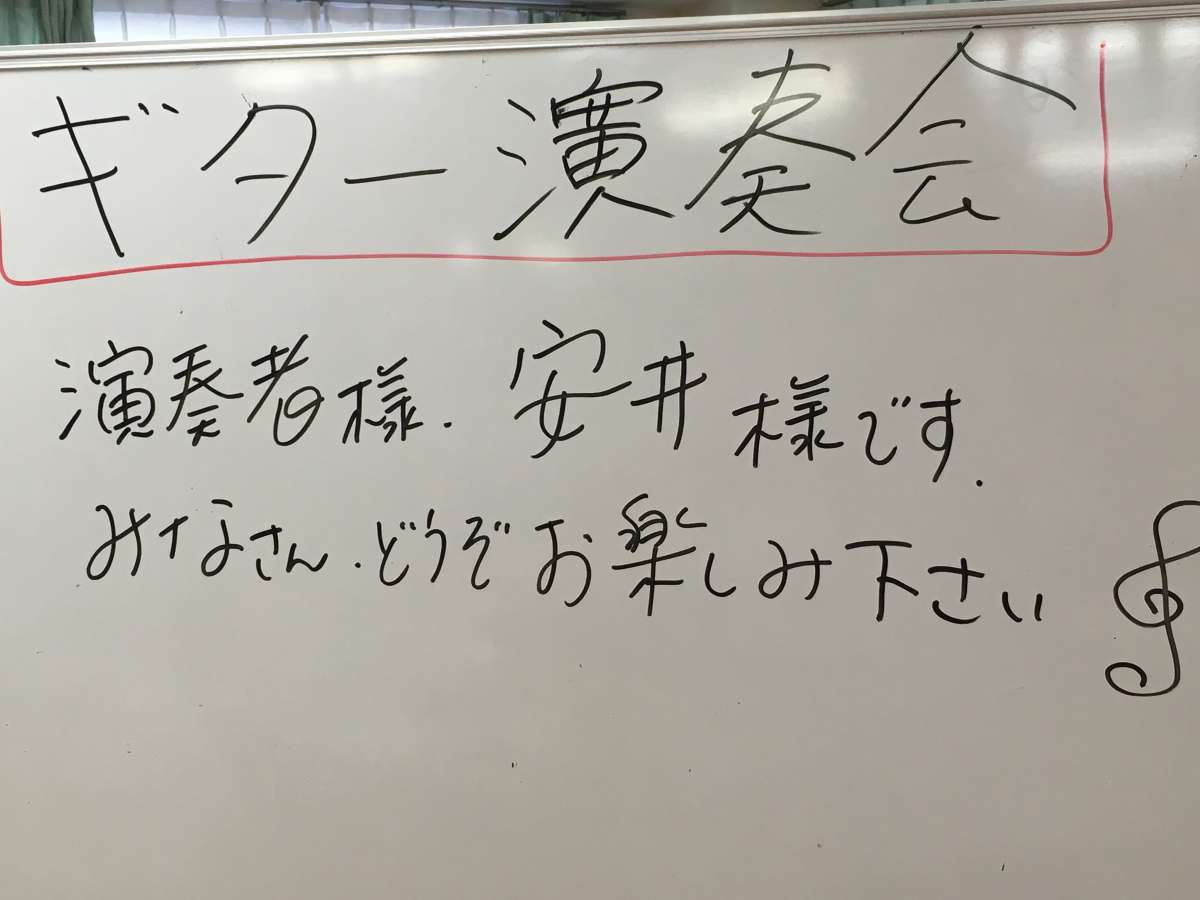 ギター演奏会
演奏者様.安井様です.
みなさん.どうぞお楽しみ下さい